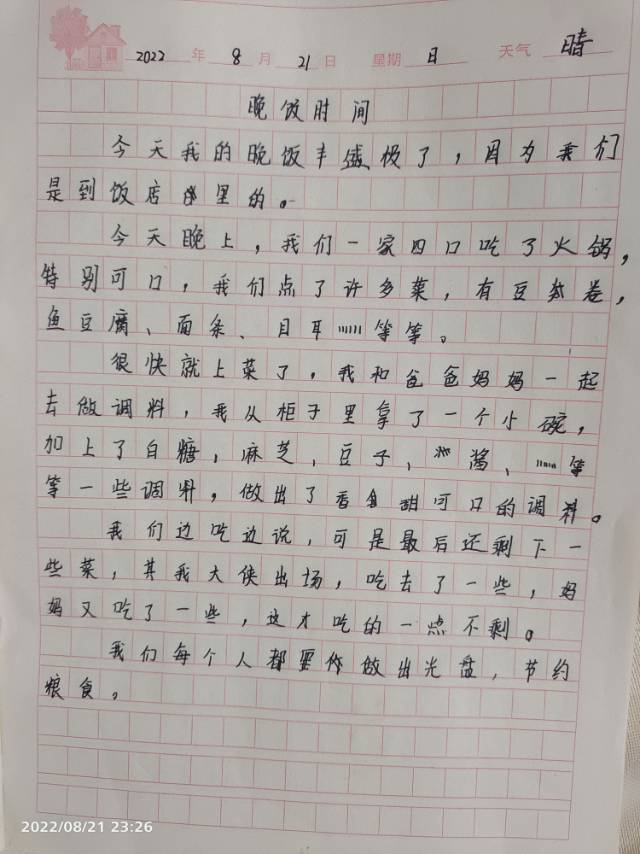 2022 年 8 月 21 日 星期 日 天气 晴
晚饭时间
今天我的晚饭丰盛极了，因为我们
是到饭店里的。
今天晚上，我们一家四口吃了火锅，
特别可口，我们点了许多菜，有豆卷，
鱼豆腐、面条、目耳……等等。
很快就上菜了，我和爸爸妈妈一起
去做调料，我从柜子里拿了一个小碗，
加上了白糖，麻芝，豆子，酱，……等
等一些调料，做出了香甜可口的调料。
我们边吃边说，可是最后还剩下一
些菜，其我大侠出场，吃去了一些，妈
妈又吃了一些，这才吃的一点不剩。
我们每个人都要做出光盘，节约
粮食。
2022/08/21 23:26